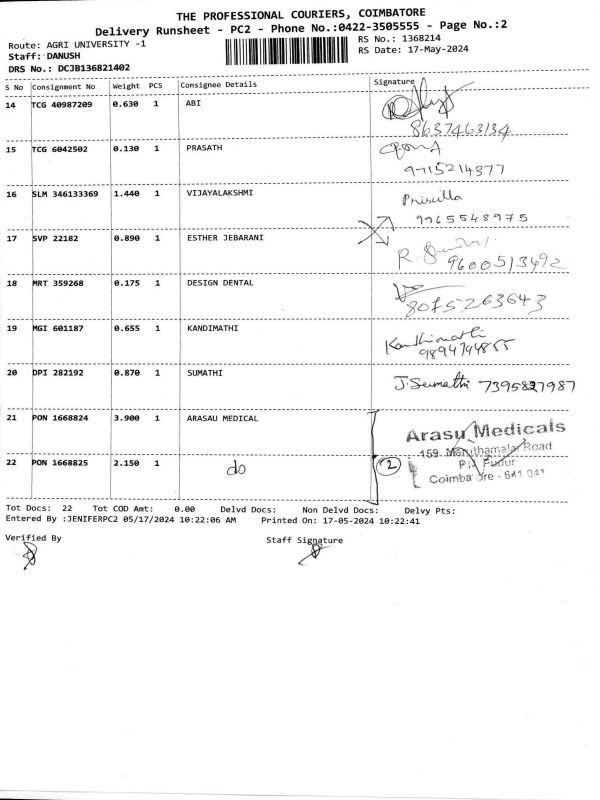 THE PROFESSIONAL COURIERS, COIMBATORE
Delivery Runsheet - PC2 - Phone No.:0422-3505555 - Page No.:2
Route: AGRI UNIVERSITY -1 RS No.: 1368214
Staff: DANUSH RS Date: 17-May-2024
DRS No.: DCJB136821402
S No Consignment No Weight PCS Consignee Details Signature
14 TCG 40987209 0.630 1 ABI
8637463134
15 TCG 6042502 0.130 1 PRASATH
9715214377
16 SLM 346133369 1.440 1 VIJAYALAKSHMI Priscilla
9965548975
17 SVP 22182 0.890 1 ESTHER JEBARANI
9600513492
18 MRT 359268 0.175 1 DESIGN DENTAL
8015263643
19 MGI 601187 0.655 1 KANDIMATHI Kanthimathi
9894794855
20 DPI 282192 0.870 1 SUMATHI J. Sumathi 7395827987
21 PON 1668824 3.900 1 ARASAU MEDICAL Arasu Medicals
159, Maruthamalai Road
22 PON 1668825 2.150 1 do 2 P.N. Pudur
Coimbatore - 641 041
Tot Docs: 22 Tot COD Amt: 0.00 Delvd Docs: Non Delvd Docs: Delvy Pts:
Entered By :JENIFERPC2 05/17/2024 10:22:06 AM Printed On: 17-05-2024 10:22:41
Verified By Staff Signature